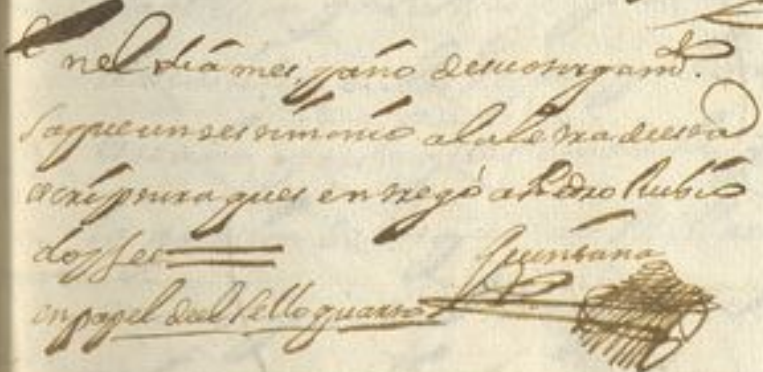 En el dia mes, y año de su otorgam.to
saque un testimonio a la letra de esta
escriptura que se entregó a Pedro Rubio
doy fee
en papel del sello quarto Quintana